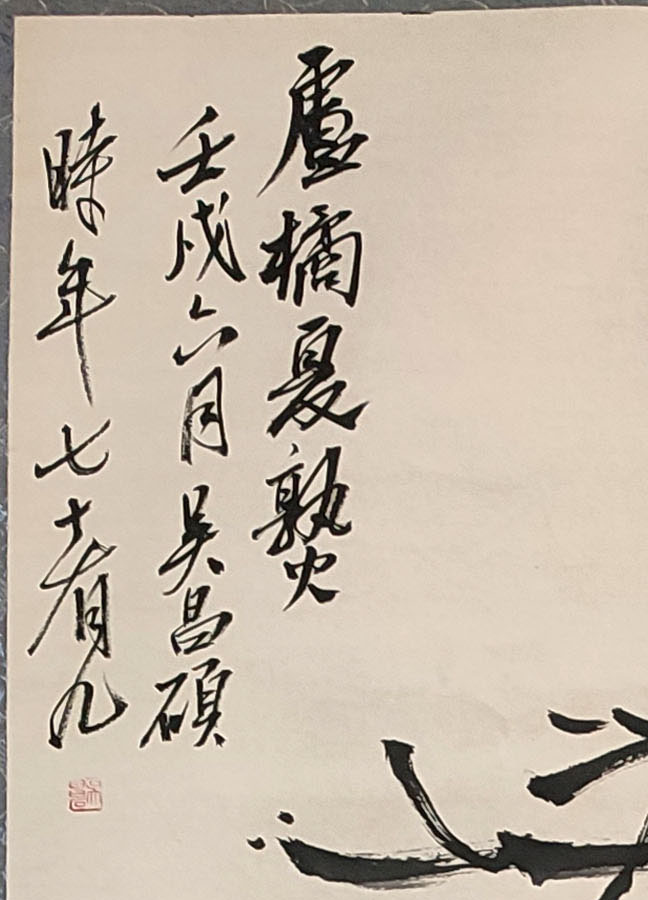 盧橘夏孰火
壬戌六月吳昌碩
時年七十有九